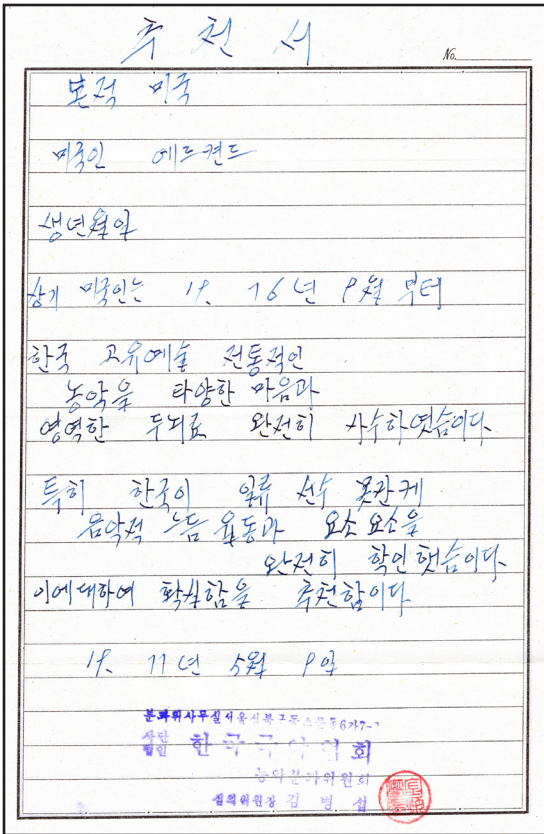 추천서
No.
본적 미국
미국인 에드켠드
생년월일
상기 미국인는 19. 76년 9월 부터
한국 고유예술 전통적인
농악을 다양한 마음과
영역한 두뇌료 완전히 사수하엿슴이다.
특히 한국이 일류 선수 못찬케
음악적 느듬 율동과 요소 요소을
완전히 확인햇슴이다.
이에대하여 확실함을 추천함이다
19. 77년 5월 9일
분과위사무실서울성북구동소문동6가7-
사단법인 한국국악협회
농악분과위원회
심의위원장 김병섭